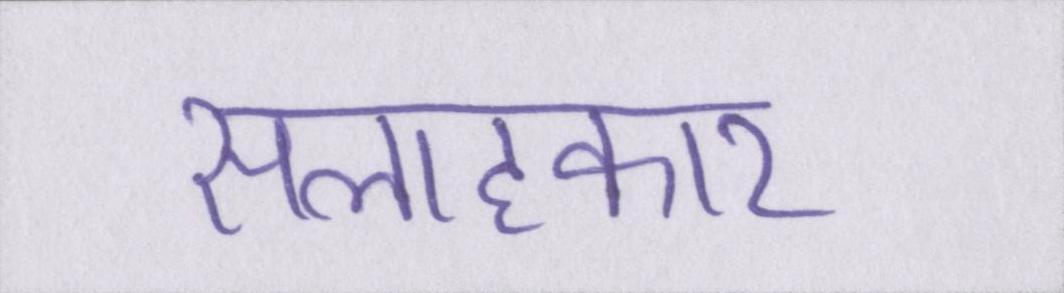 सलाहकार